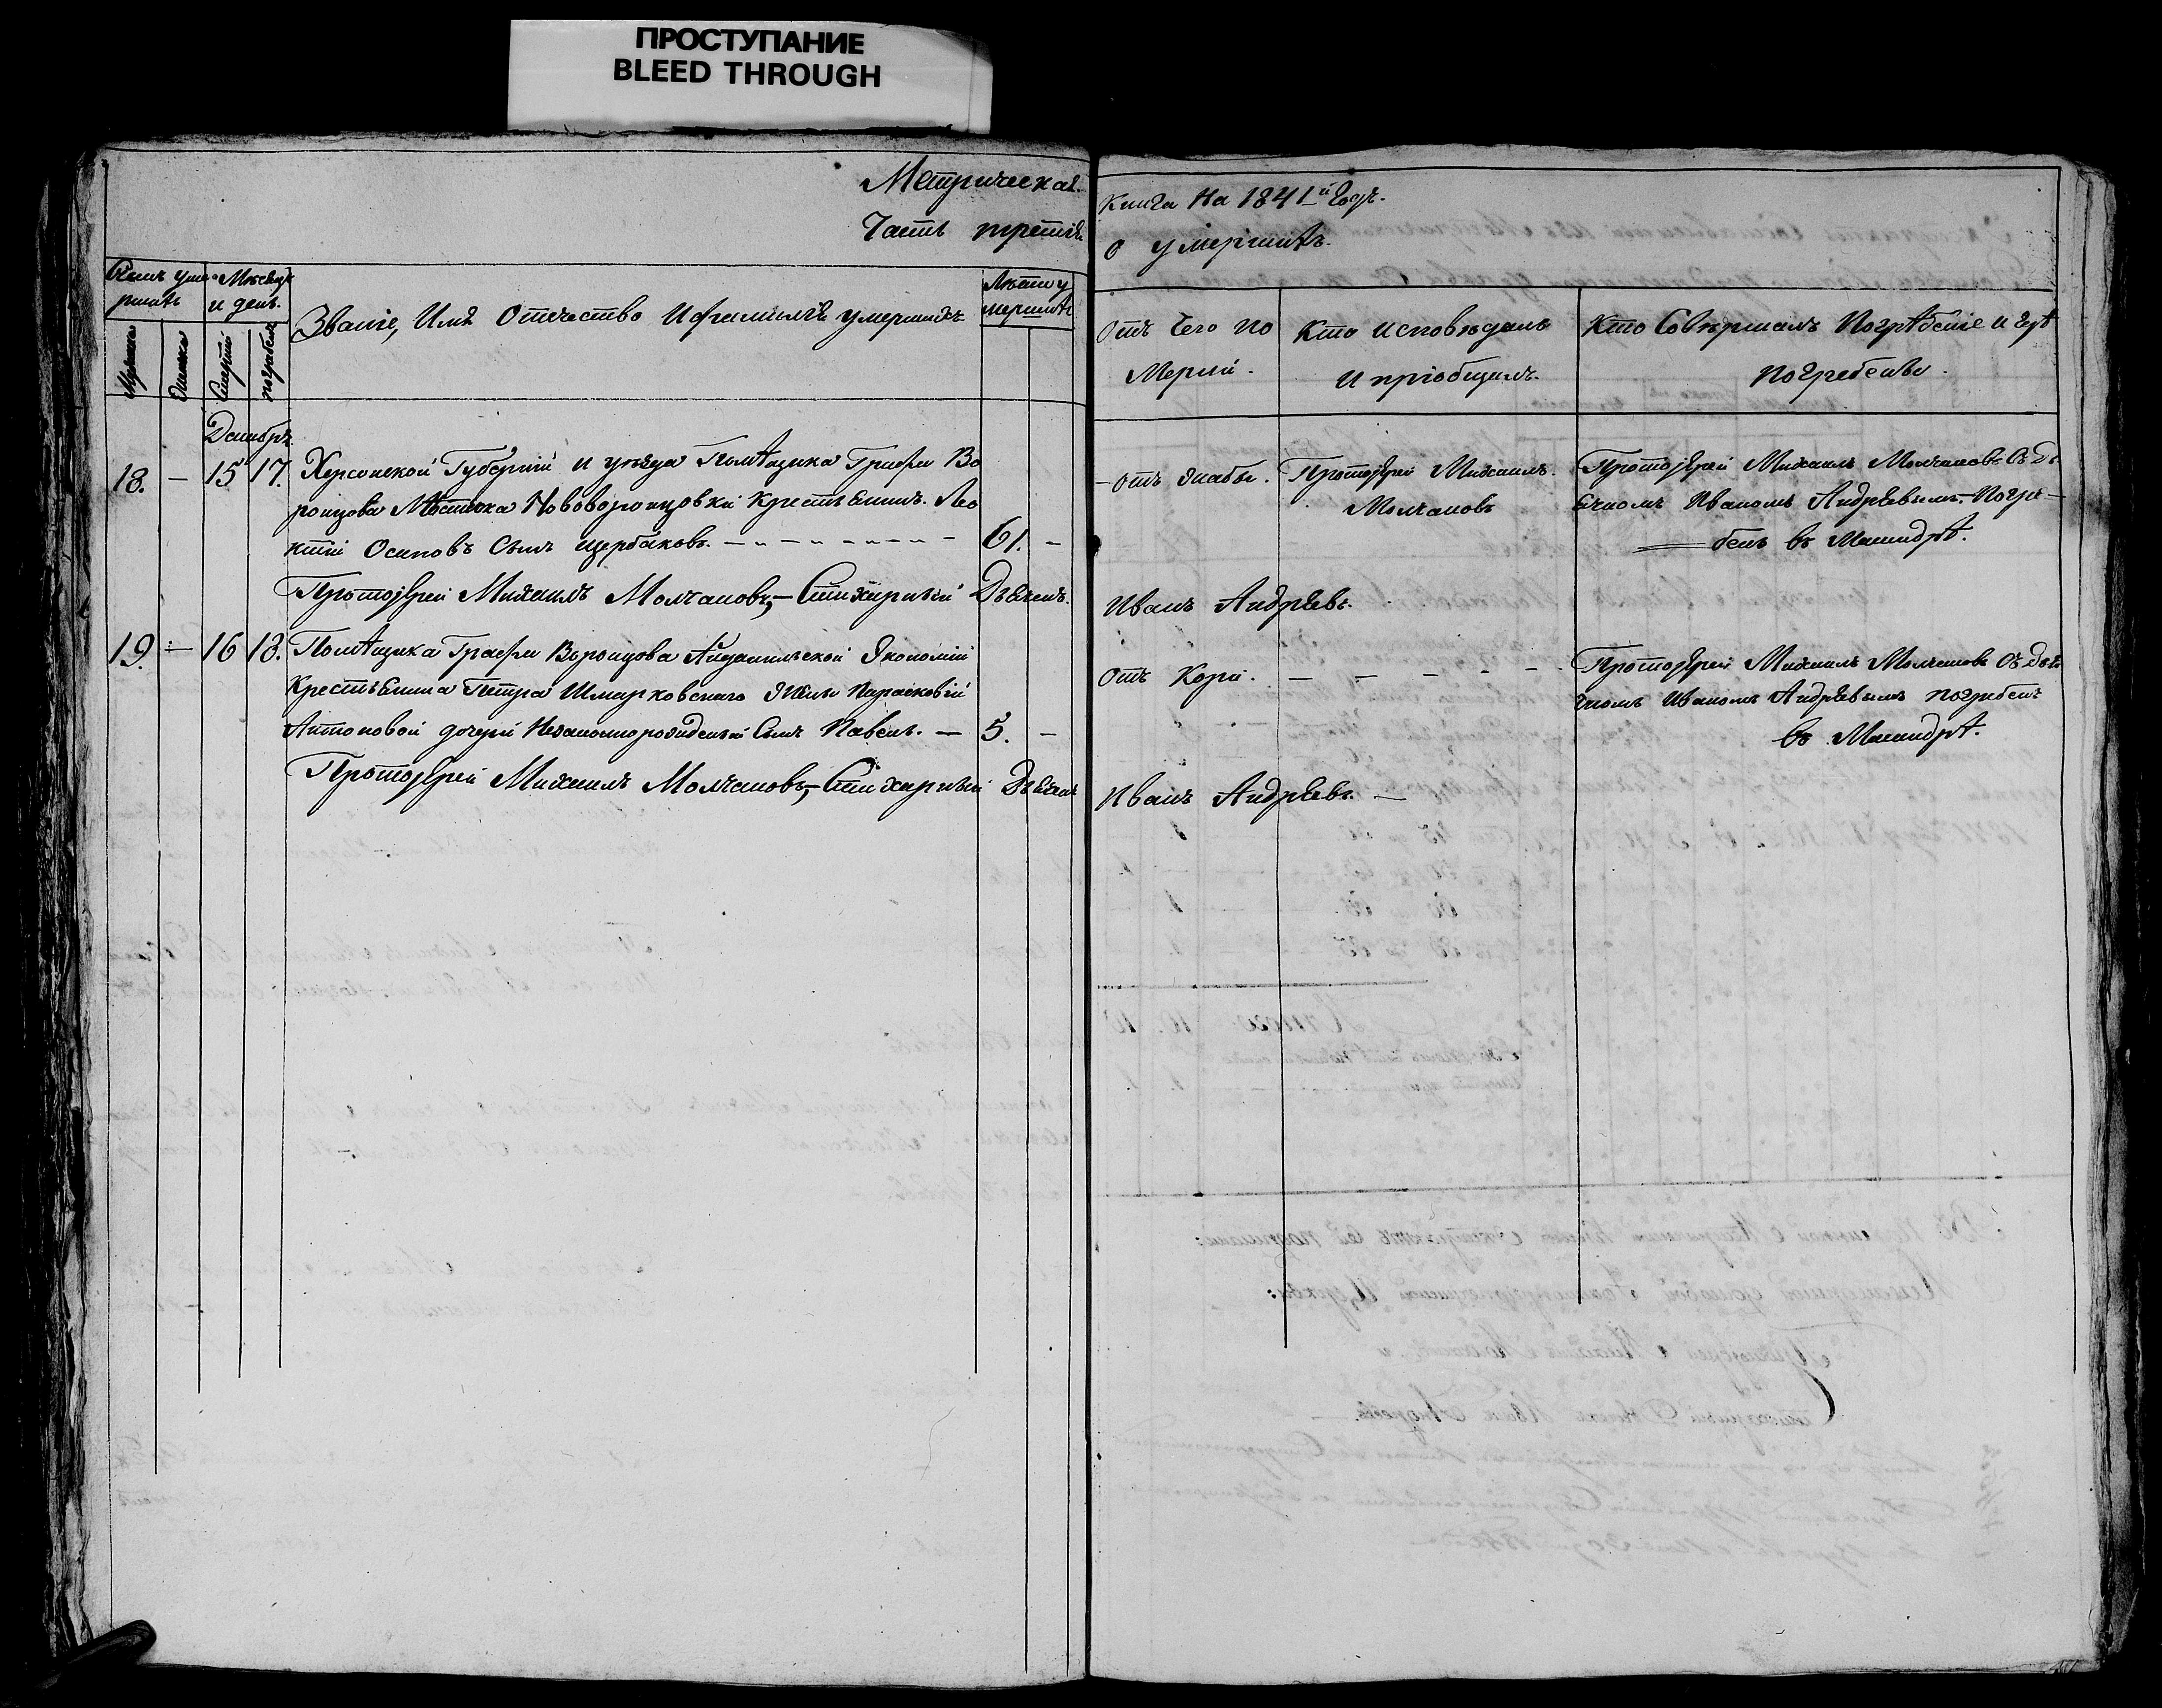 ПРОСТУПАНИЕ
BLEED THROUGH
Метрическая
Часть третія
книга на 1841й Годъ.
о умершихъ.
Мѣсяцъ
и день.
Званіе, Имя Отечество и фамиліи умершихъ
Лѣта у
мершихъ
Смерти
погребенія
Отъ Чего по
мерши.
Кто исповѣдалъ
и пріобщилъ.
Кто Совершалъ Погрѣбеніе и гдѣ
погребены.
Декабрь
18. — 15 17. Херсонской Губерніи и уѣзда Помѣщика Графа Во
ронцова Мѣстечка Нововоронцовки крестьянинъ. Лео
нтій Осиповъ Сынъ Щербаковъ. 61. —
отъ Жабы.
Протоіерей Михаилъ
Молчановъ
Протоіерей Михаилъ Молчановъ Съ Дь
ячкомъ Иваномъ Андрѣевымъ. Погре—
бенъ въ Масандрѣ.
Протоіерей Михаилъ Молчановъ, — Стихарный Дьячекъ.
Иванъ Андрѣевъ.
19. — 16 18. Помѣщика Графа Воронцова Айданильской Экономіи
крестьянина Петра Шмарковскаго Жены Парасковіи
Антоновой дочери Незаконнорожденный Сынъ Павелъ. — 5. —
отъ Кори. — — — — —
Протоіерей Михаилъ Молчановъ Съ Дья
чкомъ Иваномъ Андрѣевымъ погребенъ
въ Масандрѣ.
Протоіерей Михаилъ Молчановъ, — Стихарный Дьячекъ
Иванъ Андрѣевъ. —